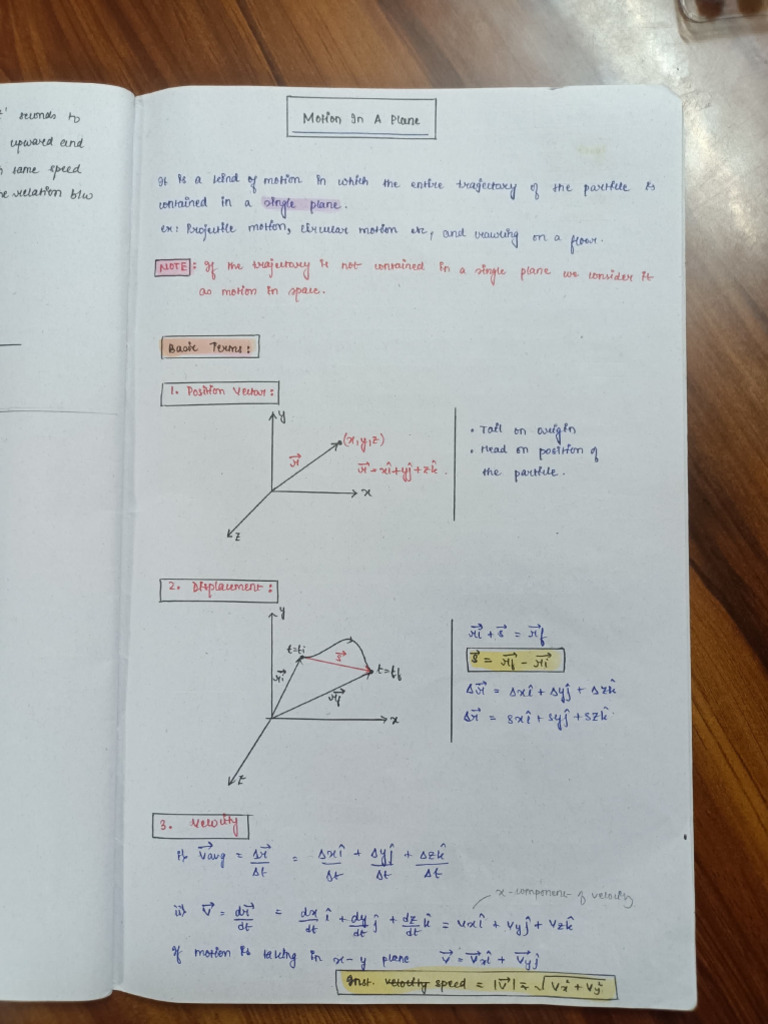 seconds to
upward and
same speed
relation b/w
Motion In A Plane
It is a kind of motion in which the entire trajectory of the particle is
contained in a single plane.
ex: Projectile motion, circular motion etc, and crawling on a floor.
NOTE: If the trajectory is not contained in a single plane we consider it
as motion in space.
Basic Terms:
1. Position Vector:
y
(x,y,z)
r⃗
r⃗ = xî+yĵ+zk̂
x
z
• Tail on origin
• Head on position of
the particle.
2. Displacement:
y
t=ti
s⃗
t=tf
r⃗i
r⃗f
x
z
r⃗i + s⃗ = r⃗f
s⃗ = r⃗f - r⃗i
Δr⃗ = Δxî + Δyĵ + Δzk̂
Δr⃗ = sxî + syĵ + szk̂
3. Velocity
i) V⃗avg = Δr⃗/Δt = Δxî/Δt + Δyĵ/Δt + Δzk̂/Δt
x-component of velocity
ii) V⃗ = dr⃗/dt = dx/dt î + dy/dt ĵ + dz/dt k̂ = vxî + vyĵ + vzk̂
If motion is taking in x-y plane V⃗ = V⃗xî + V⃗yĵ
Inst. velocity speed = |V⃗| = √Vx² + Vy²